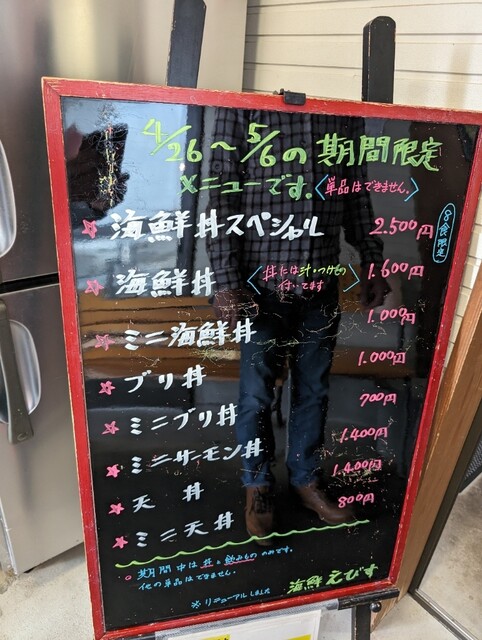 4/26〜5/6の期間限定
メニューです。〈単品はできません。〉
☆海鮮丼スペシャル 2.500円 8食限定
☆海鮮丼 〈丼には汁・つけもの付いてます〉 1.600円
☆ミニ海鮮丼 1.000円
☆ブリ丼 1.000円
☆ミニブリ丼 700円
☆ミニサーモン丼 1.400円
☆天 丼 1.400円
☆ミニ天丼 800円
○期間中は丼と飲みもののみです。
他の単品はできません。
※リニューアルしました
海鮮えびす